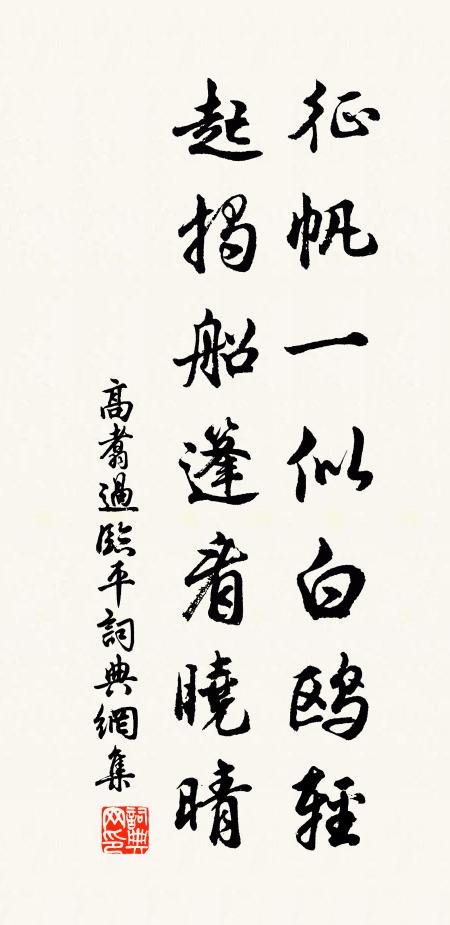 征帆一似白鸥輕
起揭船篷看曉晴
高翥過臨平詞典網集
詞典網印